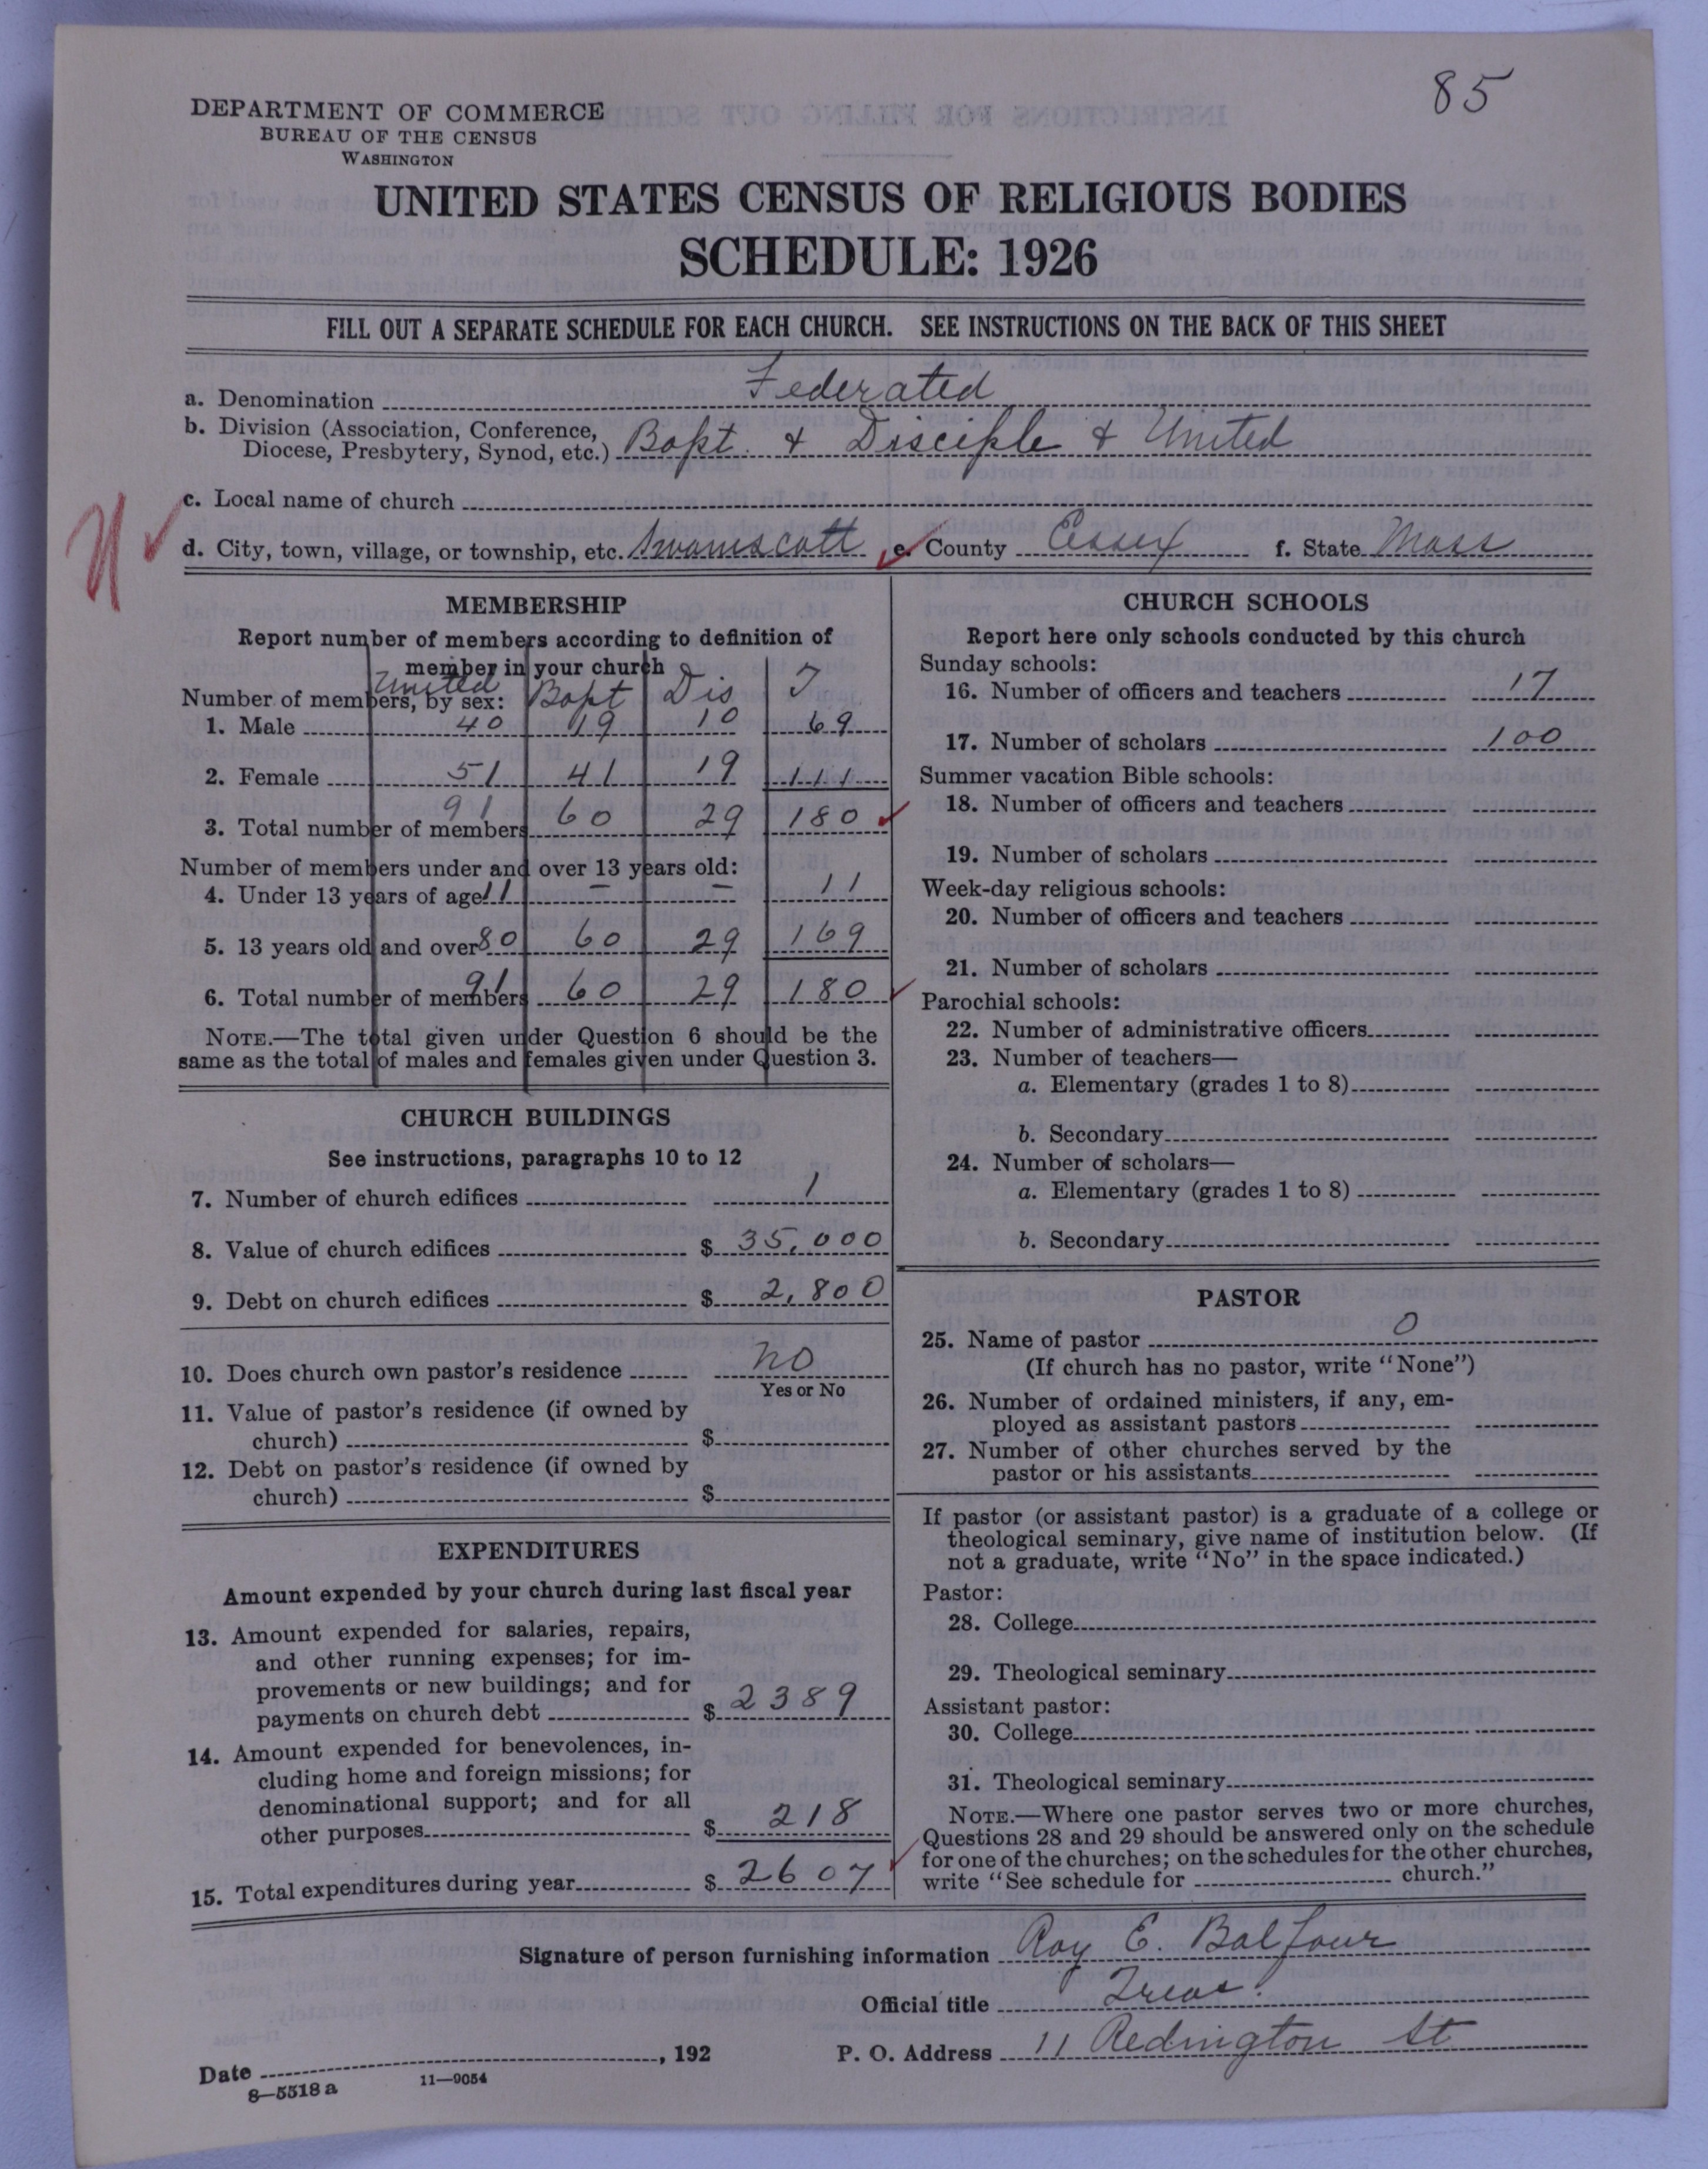 85
DEPARTMENT OF COMMERCE
BUREAU OF THE CENSUS
WASHINGTON
UNITED STATES CENSUS OF RELIGIOUS BODIES
SCHEDULE: 1926
FILL OUT A SEPARATE SCHEDULE FOR EACH CHURCH. SEE INSTRUCTIONS ON THE BACK OF THIS SHEET
a. Denomination Federated
b. Division (Association, Conference,
Diocese, Presbytery, Synod, etc.) Bapt. & Disciple & United
c. Local name of church
d. City, town, village, or township, etc. Swamscott e. County Essex f. State Mass
MEMBERSHIP
Report number of members according to definition of
member in your church
United Bapt Dis T
Number of members, by sex:
1. Male 40 19 10 69
2. Female 51 41 19 111
3. Total number of members 91 60 29 180
Number of members under and over 13 years old:
4. Under 13 years of age 11 – – 11
5. 13 years old and over 80 60 29 169
6. Total number of members 91 60 29 180
NOTE.—The total given under Question 6 should be the
same as the total of males and females given under Question 3.
CHURCH BUILDINGS
See instructions, paragraphs 10 to 12
7. Number of church edifices 1
8. Value of church edifices $ 35,000
9. Debt on church edifices $ 2,800
10. Does church own pastor's residence no
Yes or No
11. Value of pastor's residence (if owned by
church) $
12. Debt on pastor's residence (if owned by
church) $
EXPENDITURES
Amount expended by your church during last fiscal year
13. Amount expended for salaries, repairs,
and other running expenses; for im-
provements or new buildings; and for
payments on church debt $ 2389
14. Amount expended for benevolences, in-
cluding home and foreign missions; for
denominational support; and for all
other purposes $ 218
15. Total expenditures during year $ 2607
CHURCH SCHOOLS
Report here only schools conducted by this church
Sunday schools:
16. Number of officers and teachers 17
17. Number of scholars 100
Summer vacation Bible schools:
18. Number of officers and teachers
19. Number of scholars
Week-day religious schools:
20. Number of officers and teachers
21. Number of scholars
Parochial schools:
22. Number of administrative officers
23. Number of teachers—
a. Elementary (grades 1 to 8)
b. Secondary
24. Number of scholars—
a. Elementary (grades 1 to 8)
b. Secondary
PASTOR
25. Name of pastor 0
(If church has no pastor, write "None")
26. Number of ordained ministers, if any, em-
ployed as assistant pastors
27. Number of other churches served by the
pastor or his assistants
If pastor (or assistant pastor) is a graduate of a college or
theological seminary, give name of institution below. (If
not a graduate, write "No" in the space indicated.)
Pastor:
28. College
29. Theological seminary
Assistant pastor:
30. College
31. Theological seminary
NOTE.—Where one pastor serves two or more churches,
Questions 28 and 29 should be answered only on the schedule
for one of the churches; on the schedules for the other churches,
write "See schedule for church."
Signature of person furnishing information Roy E. Balfour
Official title Treas.
Date , 192 P. O. Address 11 Redington St
8—5518 a 11—9054